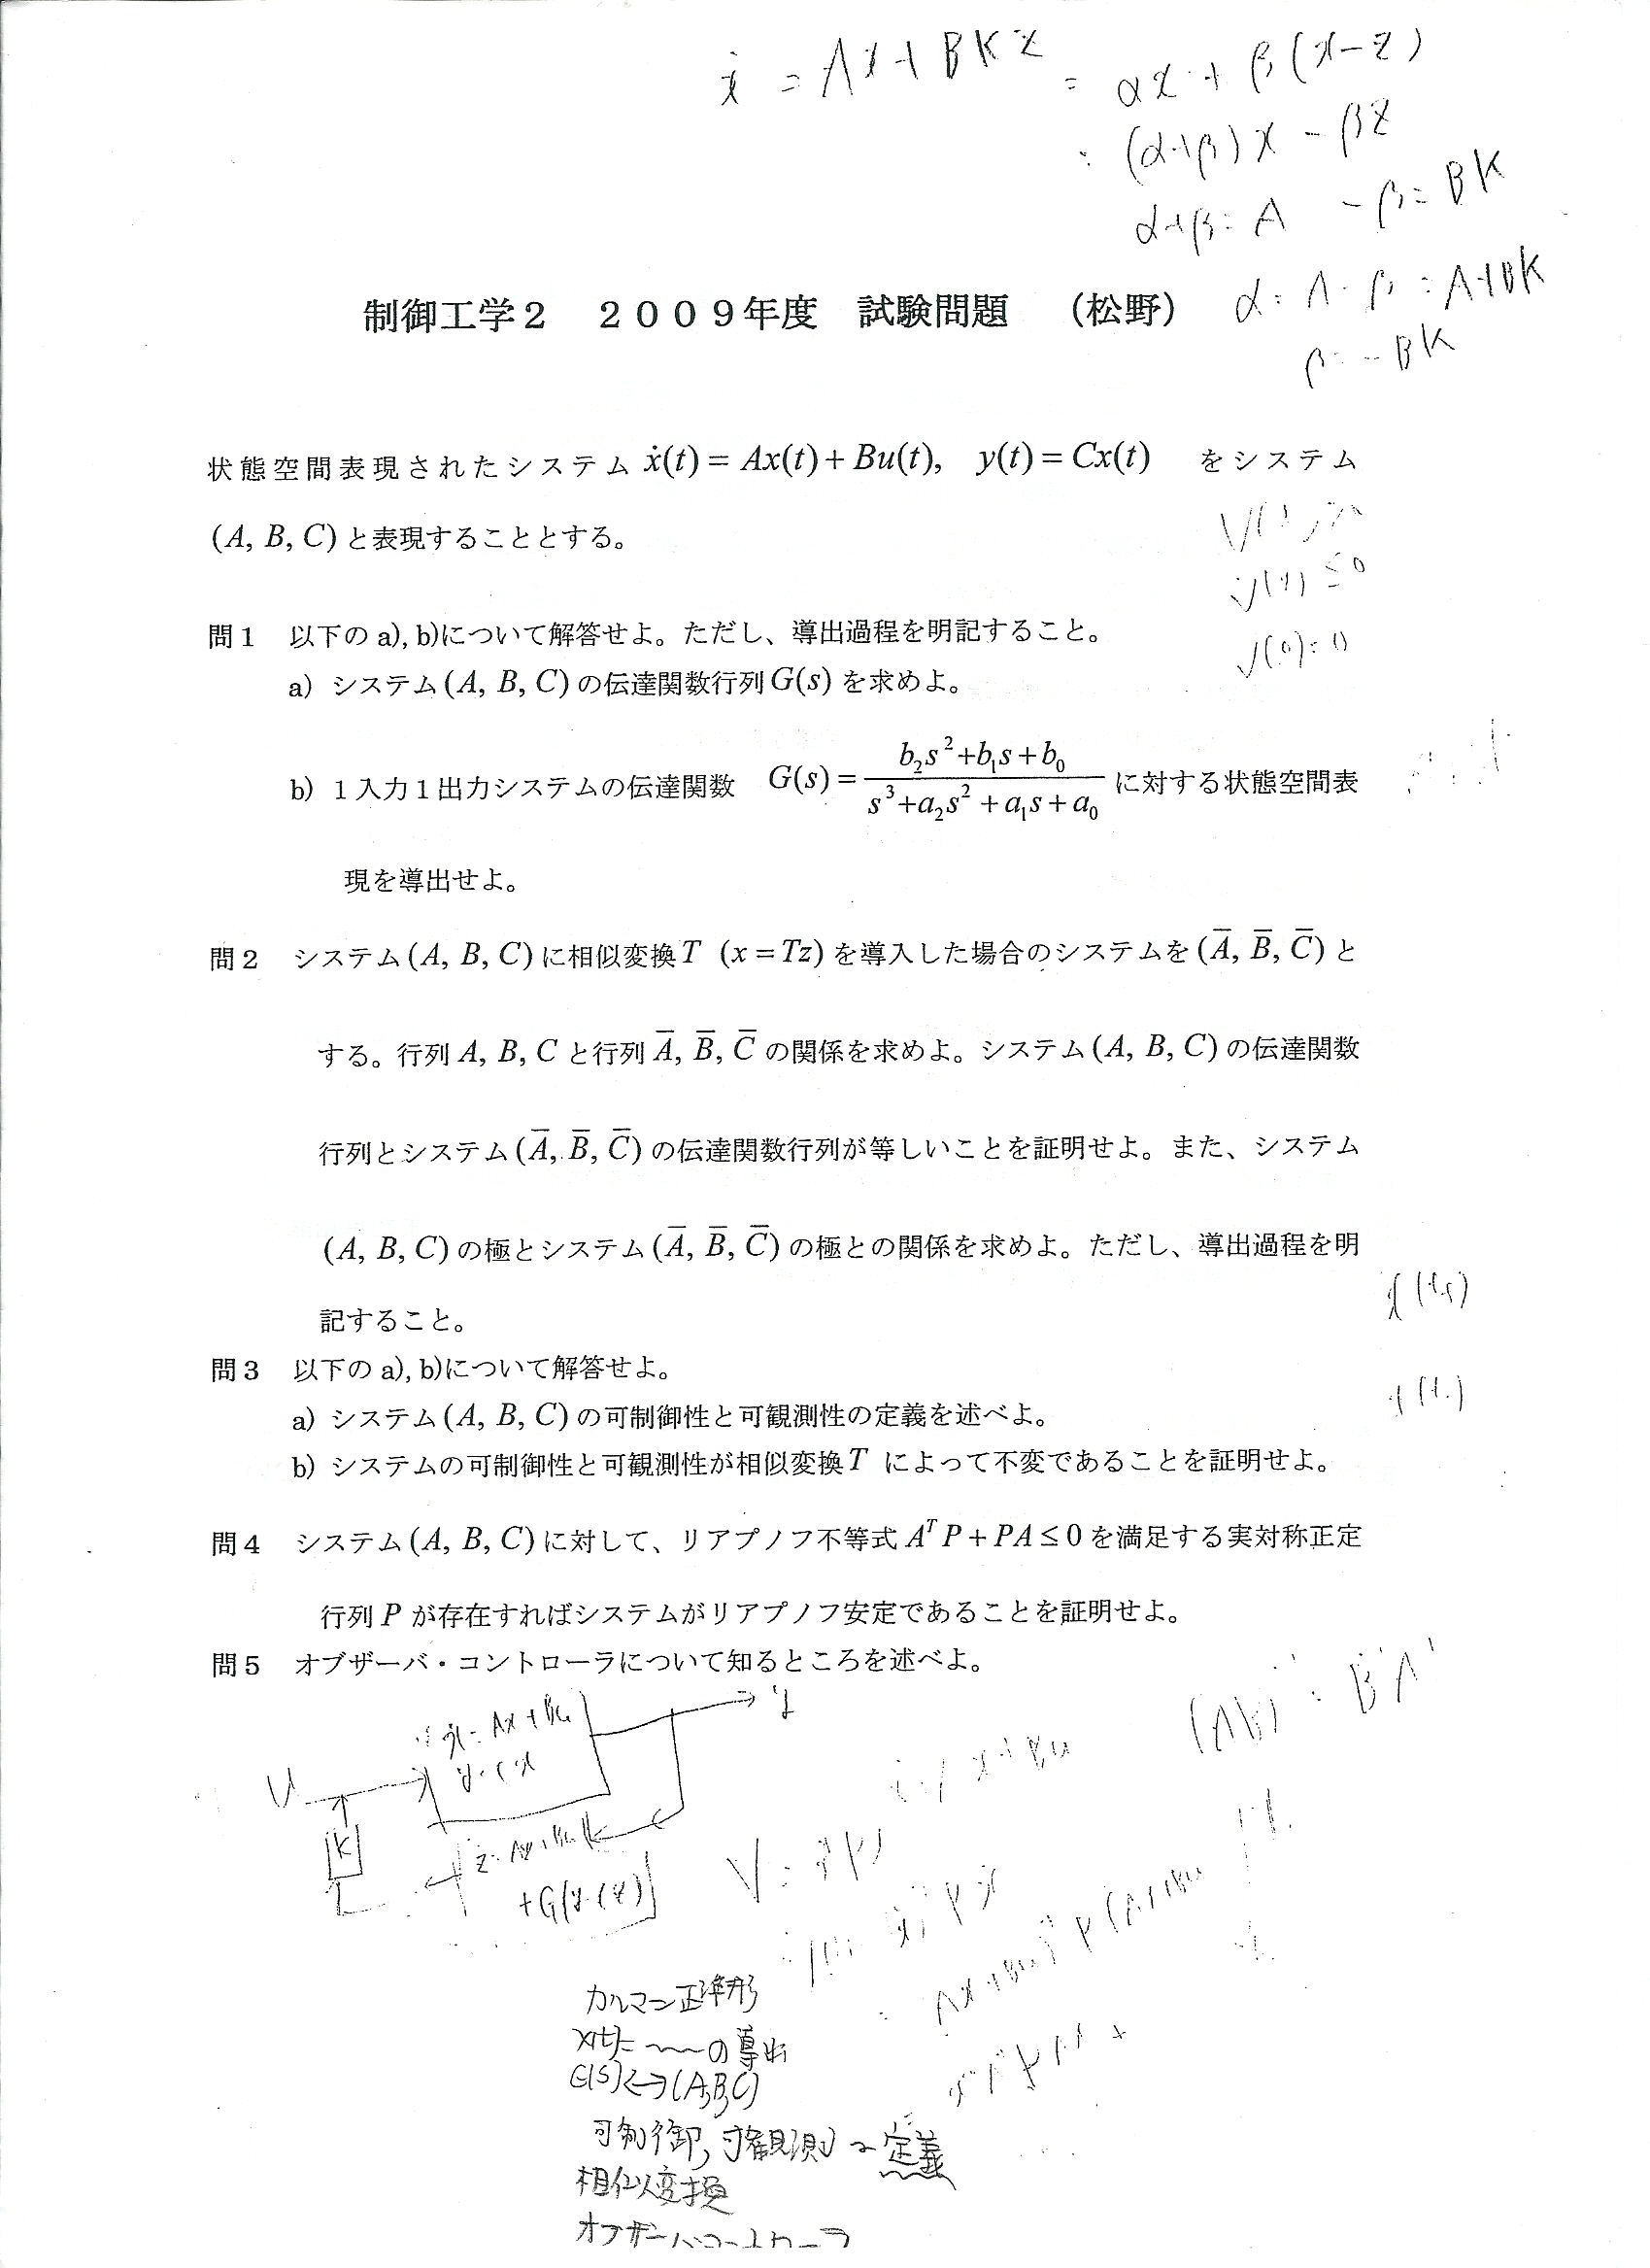 ẋ = Ax + BKz = αx + β(x-z)
= (α+β)x - βz
α+β = A -β = BK
α = A - β = A+BK
β = -BK
制御工学2 2009年度 試験問題 (松野)
状態空間表現されたシステム ẋ(t) = Ax(t) + Bu(t), y(t) = Cx(t) をシステム
(A, B, C)と表現することとする。
V̇(x) ≤ 0
V(0) = 0
問1 以下の a), b)について解答せよ。ただし、導出過程を明記すること。
a) システム(A, B, C)の伝達関数行列G(s)を求めよ。
b) 1入力1出力システムの伝達関数 G(s) = (b₂s²+b₁s+b₀)/(s³+a₂s²+a₁s+a₀) に対する状態空間表
現を導出せよ。
問2 システム(A, B, C)に相似変換T (x = Tz)を導入した場合のシステムを(A̅, B̅, C̅)と
する。行列 A, B, C と行列 A̅, B̅, C̅ の関係を求めよ。システム(A, B, C)の伝達関数
行列とシステム(A̅, B̅, C̅)の伝達関数行列が等しいことを証明せよ。また、システム
(A, B, C)の極とシステム(A̅, B̅, C̅)の極との関係を求めよ。ただし、導出過程を明
記すること。
問3 以下の a), b)について解答せよ。
a) システム(A, B, C)の可制御性と可観測性の定義を述べよ。
b) システムの可制御性と可観測性が相似変換T によって不変であることを証明せよ。
問4 システム(A, B, C)に対して、リアプノフ不等式 AᵀP + PA ≤ 0 を満足する実対称正定
行列 P が存在すればシステムがリアプノフ安定であることを証明せよ。
問5 オブザーバ・コントローラについて知るところを述べよ。
ẋ = Ax + Bu
y = Cx
y
u
K
+G(y-Cz)
カルマン正準形
x(t)= 〜〜の導出
G(s)↔(A,B,C)
可制御, 可観測の定義
相似変換
オブザーバコントローラ